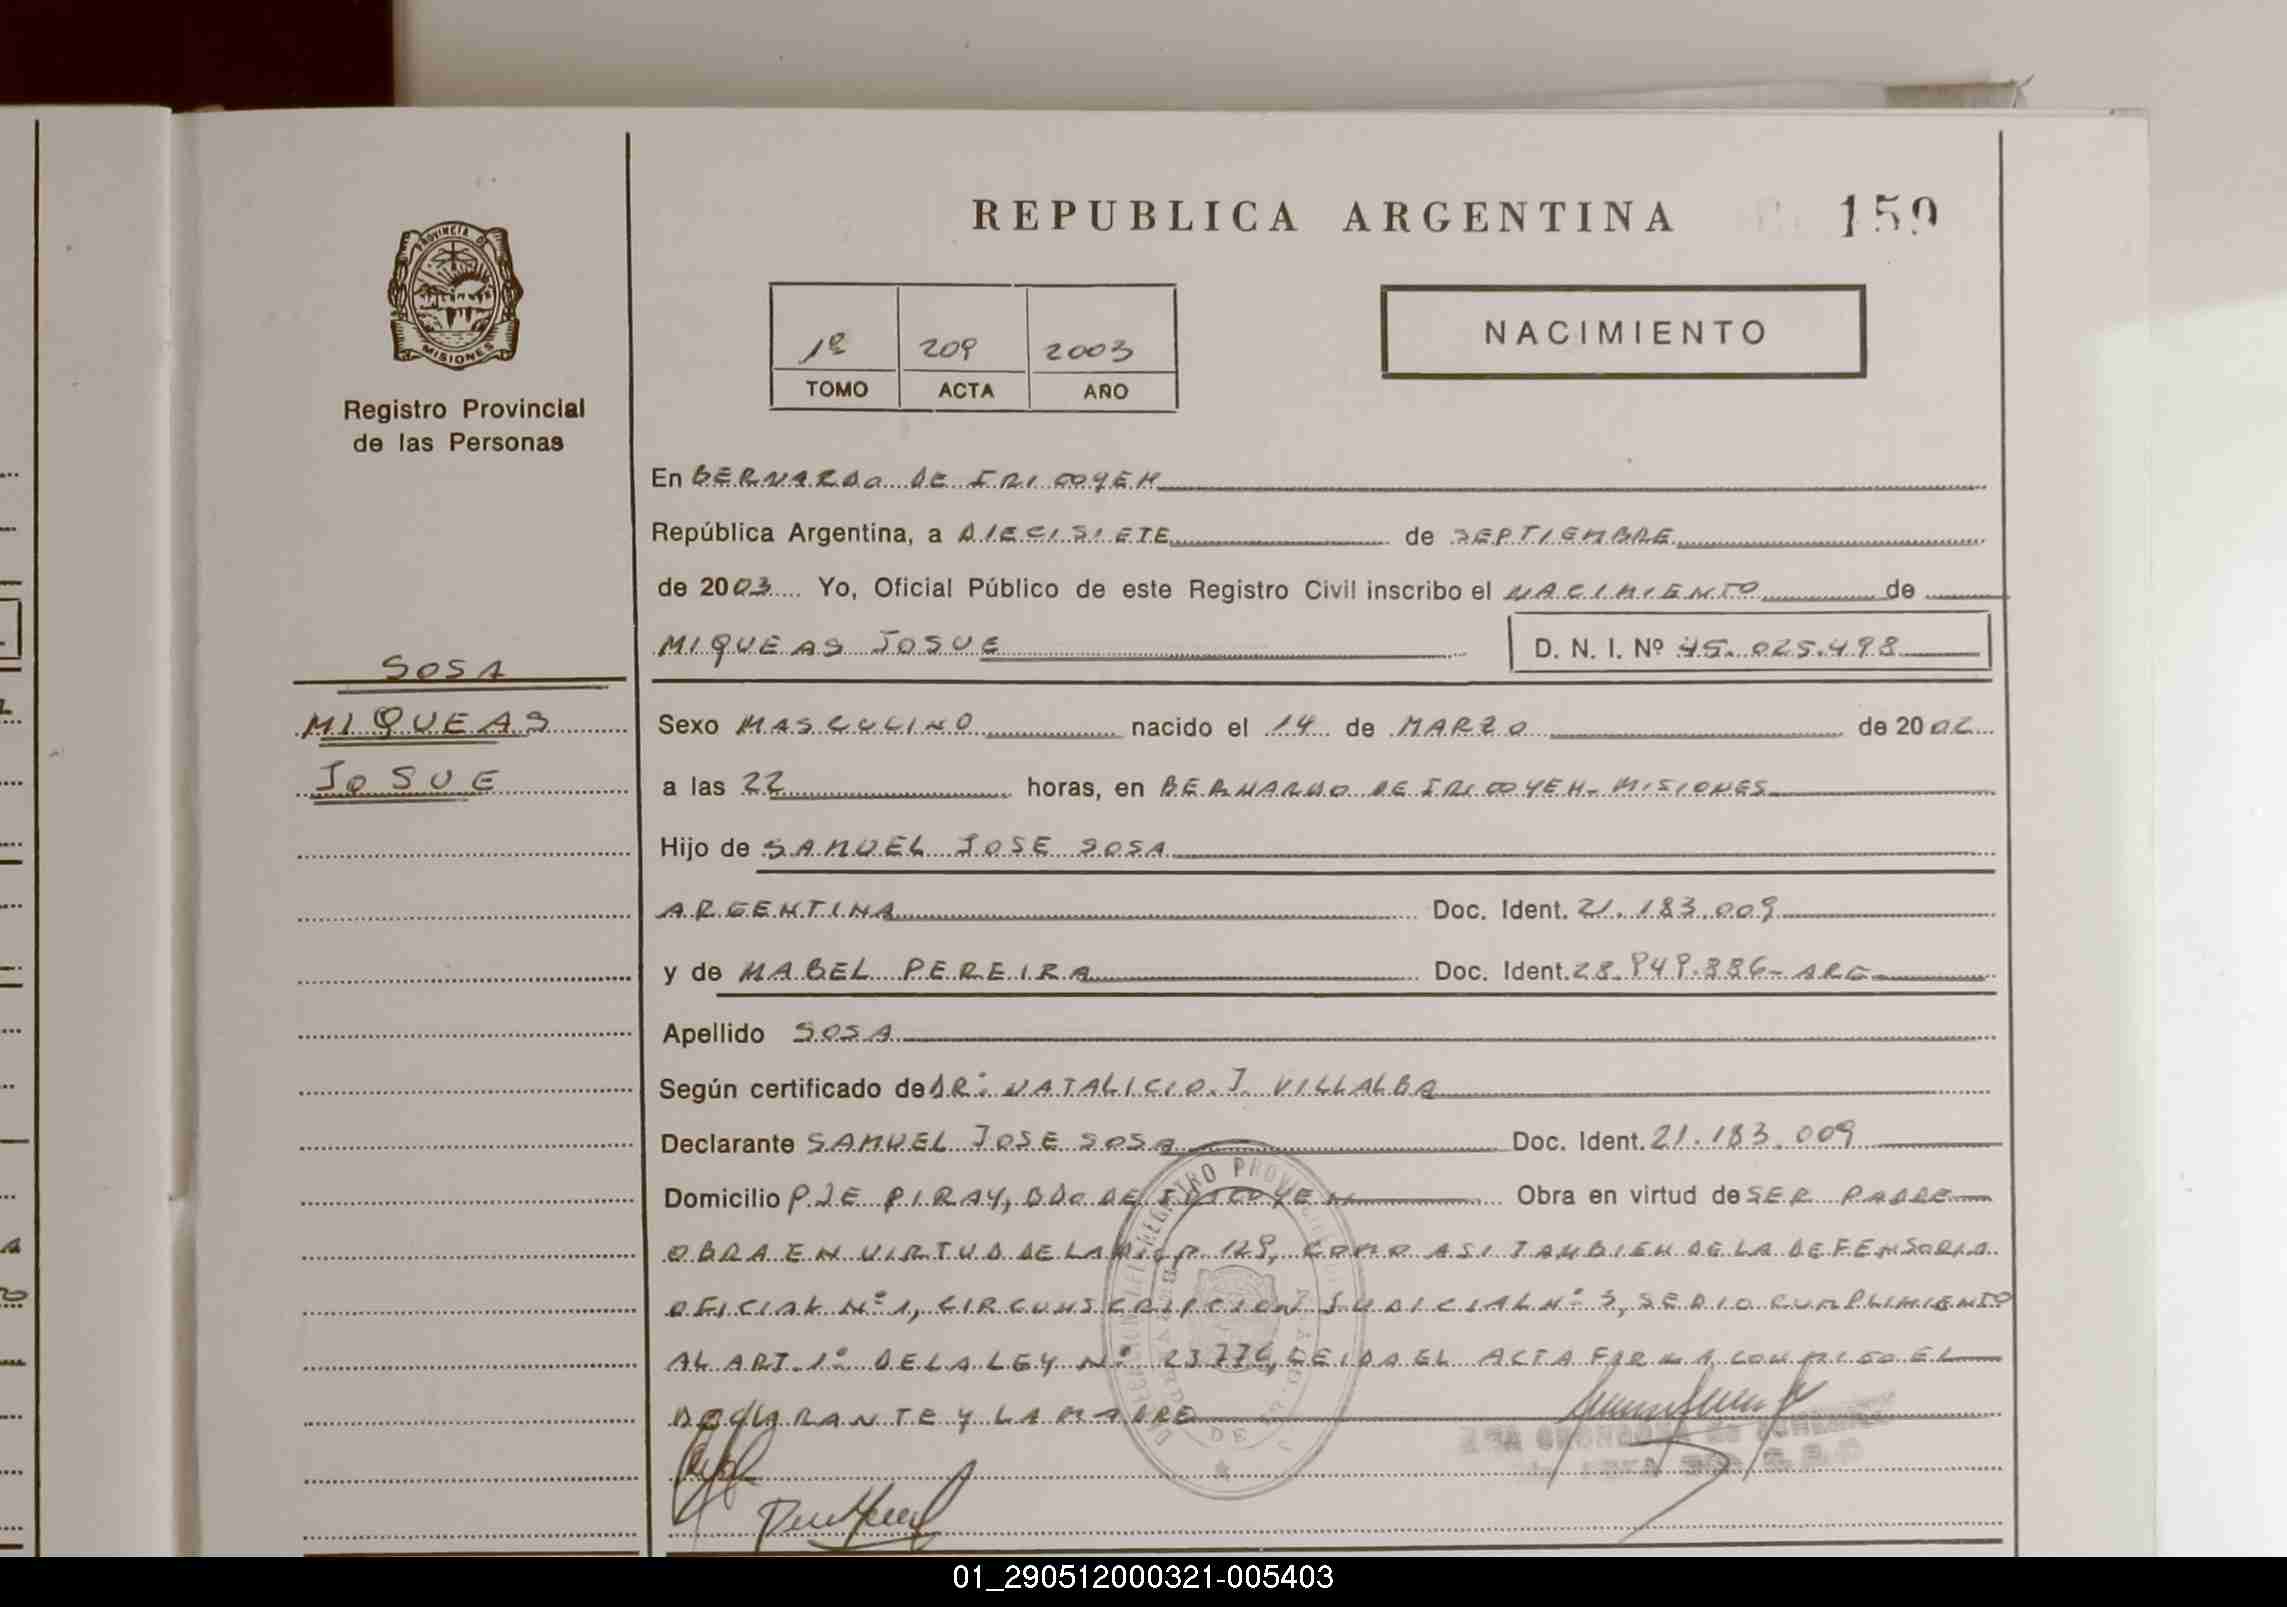 PROVINCIA DE
MISIONES
Registro Provincial
de las Personas
REPUBLICA ARGENTINA 159
1º 209 2003
TOMO ACTA AÑO
NACIMIENTO
En BERNARDO DE IRIGOYEN
República Argentina, a DIECISIETE de SEPTIEMBRE
de 2003 Yo, Oficial Público de este Registro Civil inscribo el NACIMIENTO de
MIQUEAS JOSUE D. N. I. Nº 45.025.498
SOSA
MIQUEAS
JOSUE
Sexo MASCULINO nacido el 14 de MARZO de 2002
a las 22 horas, en BERNARDO DE IRIGOYEN-MISIONES
Hijo de SAMUEL JOSE SOSA
ARGENTINA Doc. Ident. 21.183.009
y de MABEL PEREIRA Doc. Ident. ARG
Apellido SOSA
Según certificado de DR: NATALICIO J. VILLALBA
Declarante SAMUEL JOSE SOSA Doc. Ident. 21.183.009
Domicilio PJE PIRAY, BDO DE IRIGOYEN Obra en virtud de SER PADRE
OBRA EN VIRTUD DE LA 129, COMO ASI TAMBIEN DE LA DEFENSORIA
OFICIAL Nº 1, CIRCUNSCRIPCION JUDICIAL Nº 3, SE DIO CUMPLIMIENTO
AL ART. 1º DE LA LEY Nº 23776, LEIDA EL ACTA FIRMA CONMIGO EL
DECLARANTE Y LA MADRE
01_290512000321-005403